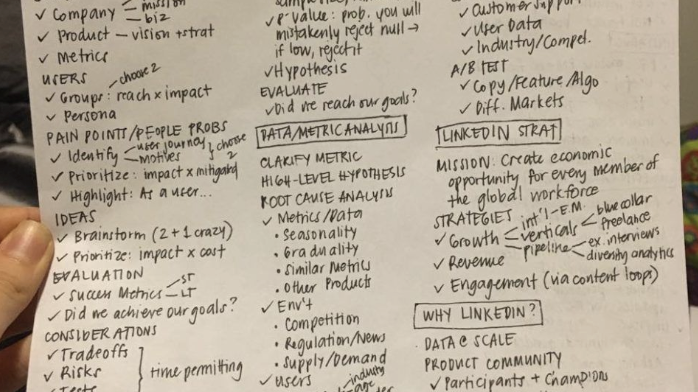 ✓ Company - mission
- biz
✓ Product - vision + strat
✓ Metrics
USERS
choose 2
✓ Groups: reach x impact
✓ Persona
PAIN POINTS/PEOPLE PROBS
✓ Identify - user journey
- motives
choose 2
✓ Prioritize: impact x mitigand
✓ Highlight: As a user...
IDEAS
✓ Brainstorm (2 + 1 crazy)
✓ Prioritize: impact x cost
EVALUATION
✓ Success Metrics - ST
- LT
✓ Did we achieve our goals?
CONSIDERATIONS
✓ Tradeoffs
✓ Risks
time permitting
✓ p-value: prob. you will
mistakenly reject null →
if low, reject it
✓ Hypothesis
EVALUATE
✓ Did we reach our goals?
DATA/METRIC ANALYSIS
CLARIFY METRIC
HIGH-LEVEL HYPOTHESIS
ROOT CAUSE ANALYSIS
✓ Metrics/Data
• Seasonality
• Graduality
• Similar Metrics
• Other Products
✓ Env't
• Competition
• Regulation/News
• Supply/Demand
✓ Users
industry
age
✓ Customer Support
✓ User Data
✓ Industry/Compet.
A/B TEST
✓ Copy/Feature/Algo
✓ Diff. Markets
LINKEDIN STRAT
MISSION: Create economic
opportunity for every member of
the global workforce
STRATEGIES
✓ Growth - int'l - E.M.
- verticals - blue collar
- freelance
- pipeline - ex. interviews
- diversity analytics
✓ Revenue
✓ Engagement (via content loops)
WHY LINKEDIN?
DATA @ SCALE
PRODUCT COMMUNITY
✓ Participants + Champions